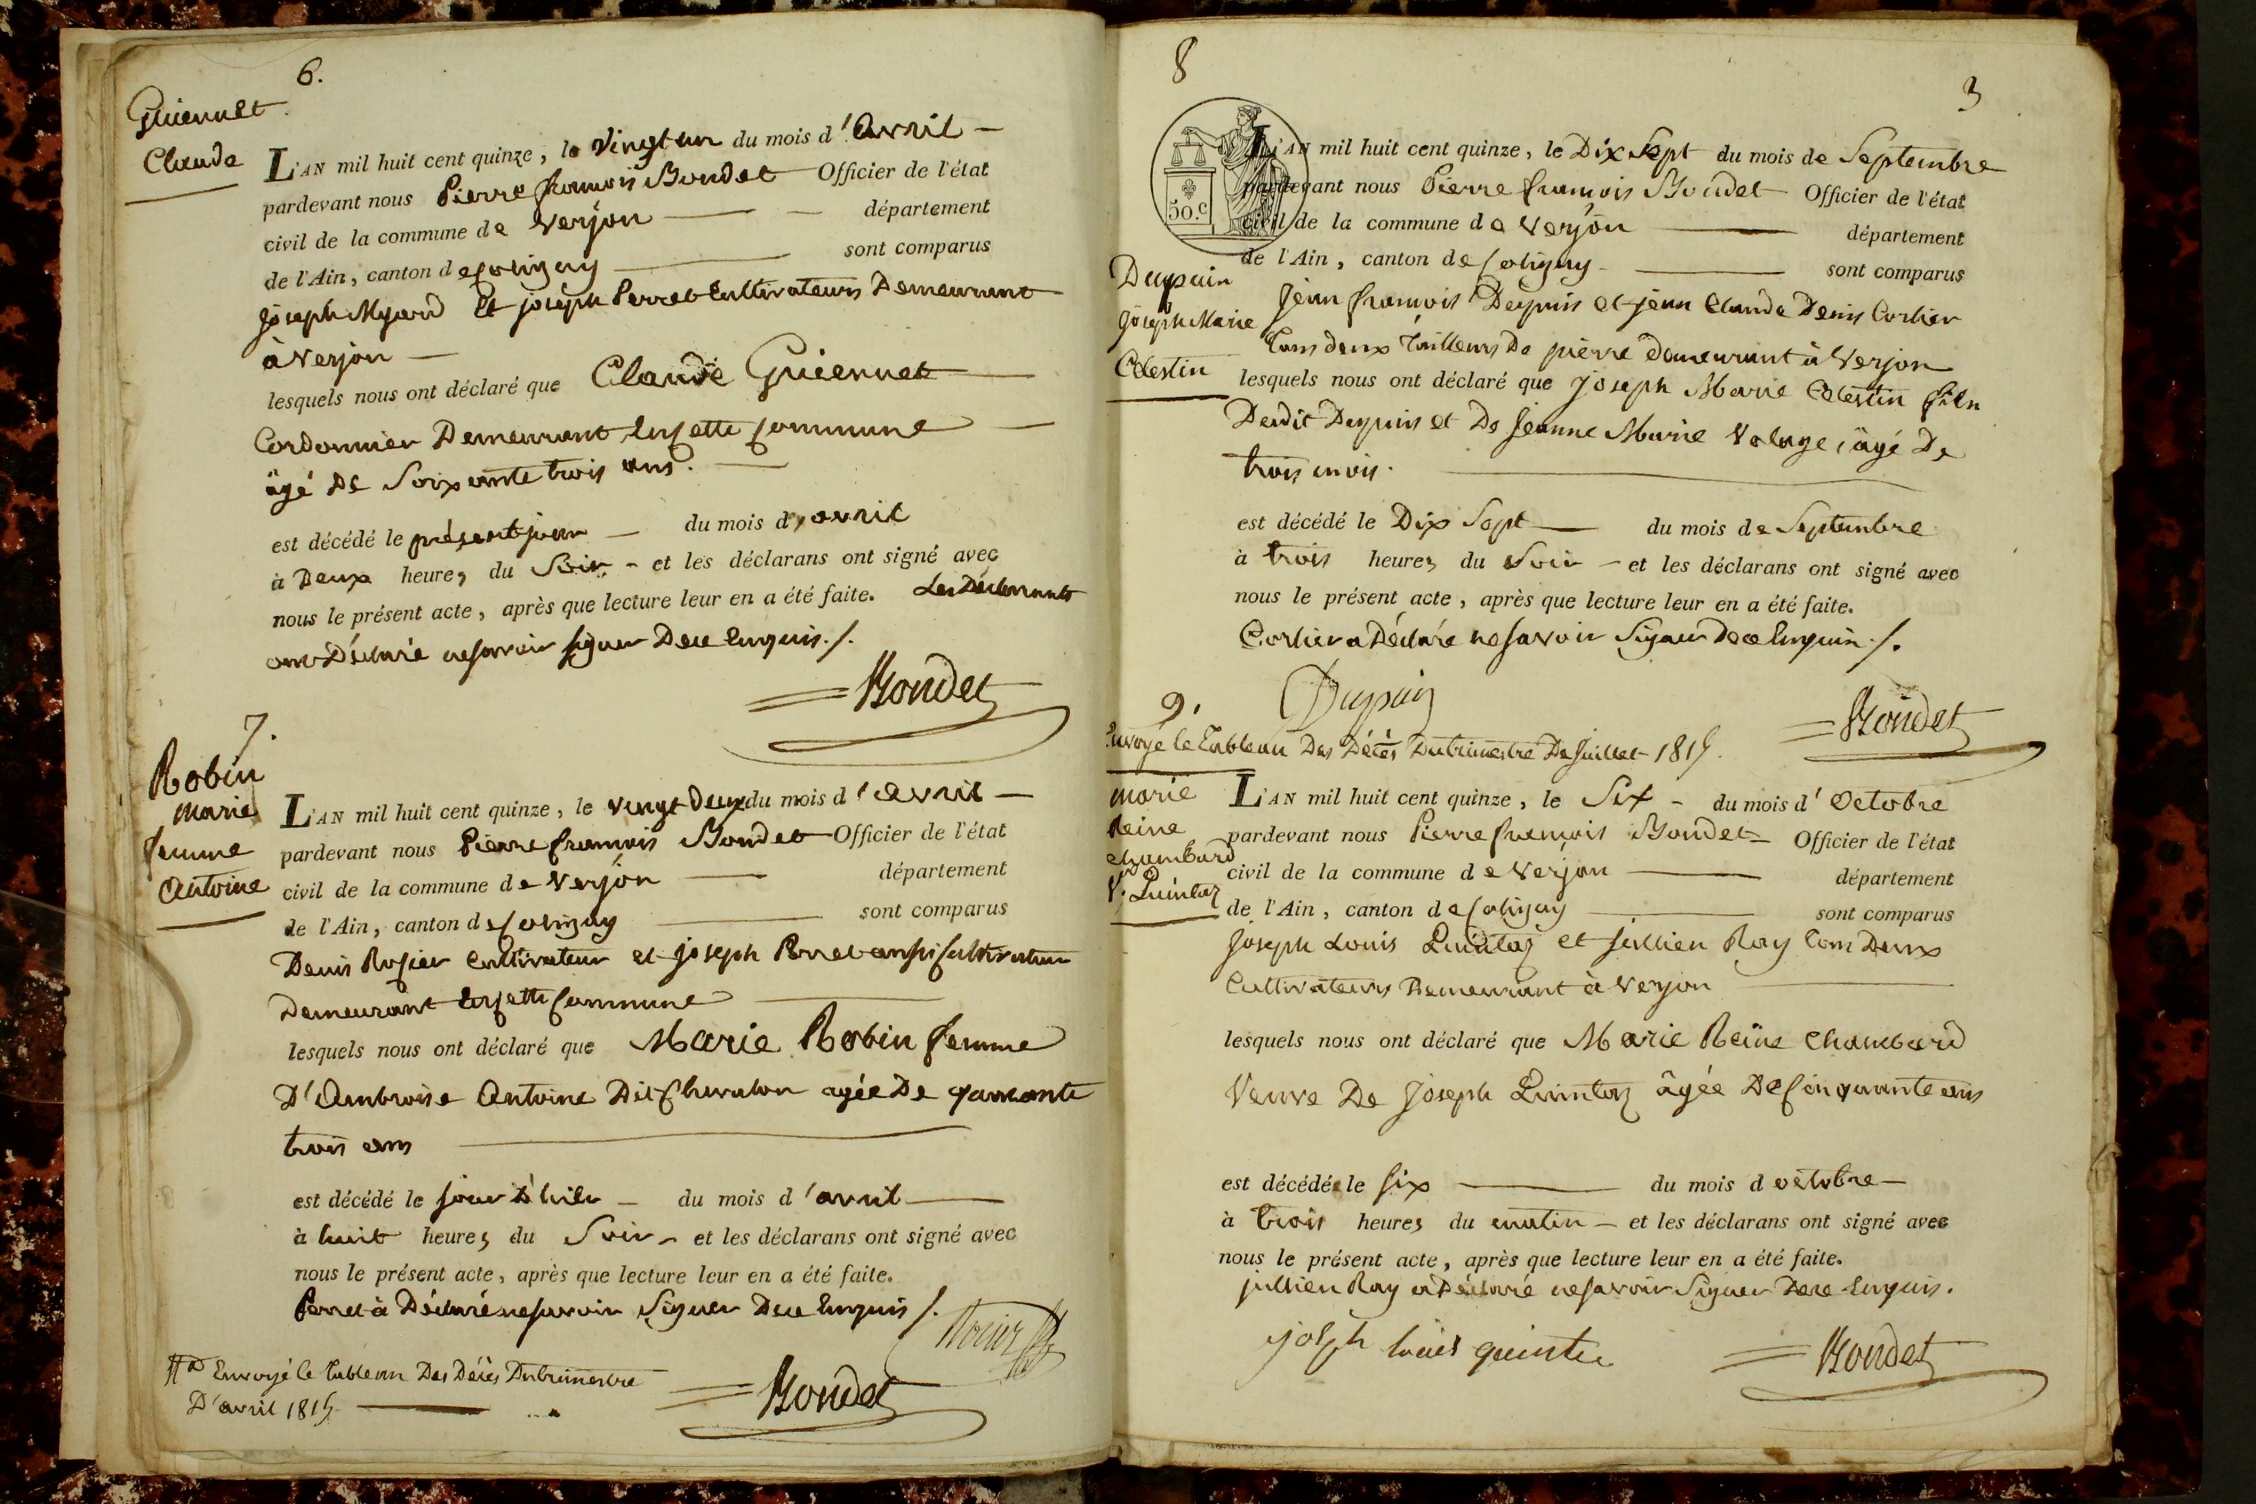 6.
Guiennet
Claude
L'AN mil huit cent quinze, le vingt un du mois d'Avril
pardevant nous Pierre françois Bondet Officier de l'état
civil de la commune de Verjon département
de l'Ain, canton de Coligny sont comparus
joseph Myard et joseph Perret Cultivateurs Demeurant
à Verjon
lesquels nous ont déclaré que Claude Guiennet
Cordonnier Demeurant En cette Commune
âgé De Soixante trois ans.
est décédé le présent jour du mois d'avril
à Deux heures du Soir et les déclarans ont signé avec
nous le présent acte, après que lecture leur en a été faite. Les Déclarants
ont Déclaré ne savoir signer De ce Enquis ./.
Bondet
7.
Robin
Marie
femme
Antoine
L'AN mil huit cent quinze, le vingt Deux du mois d'avril
pardevant nous Pierre françois Bondet Officier de l'état
civil de la commune de Verjon département
de l'Ain, canton de Coligny sont comparus
Denis Rosier Cultivateur et joseph Perret aussi Cultivateur
Demeurant En cette Commune
lesquels nous ont déclaré que Marie Robin femme
D'Ambroise Antoine Dit agée De quarante
trois ans
est décédé le jour D'hier du mois d'avril
à huit heures du Soir et les déclarans ont signé avec
nous le présent acte, après que lecture leur en a été faite.
Perret à Déclaré ne savoir Signer De ce Enquis /.
Envoyé le Tableau Des Décès Du trimestre
D'avril 1815
Bondet
8
3
50.c
L'AN mil huit cent quinze, le Dix Sept du mois de Septembre
pardevant nous Pierre françois Bondet Officier de l'état
civil de la commune de Verjon département
de l'Ain, canton de Coligny sont comparus
Dupuin
joseph Marie
Celestin
Jean françois Dupuis et jean Claude Denis Corlier
Tous deux Tailleurs De pierre demeurant à Verjon
lesquels nous ont déclaré que joseph Marie Celestin fils
Dudit Dupuis et De Jeanne Marie Volage, âgé De
trois mois.
est décédé le Dix Sept du mois de Septembre
à trois heures du Soir et les déclarans ont signé avec
nous le présent acte, après que lecture leur en a été faite.
Corlier a Déclaré ne Savoir Signer De ce Enquin ./.
Dupuis
Bondet
9.
Envoyé le Tableau Des Décès Du trimestre De Juillet 1815.
Marie
Reine
chambard
V. Quintaz
L'AN mil huit cent quinze, le Six du mois d'Octobre
pardevant nous Pierre françois Bondet Officier de l'état
civil de la commune de Verjon département
de l'Ain, canton de Coligny sont comparus
joseph Louis Quintaz et jullien Ray Tous Deux
Cultivateurs Demeurant à Verjon
lesquels nous ont déclaré que Marie Reine Chambard
Veuve De Joseph Quintaz âgée De Cinquante ans
est décédée le six du mois d octobre
à trois heures du matin et les déclarans ont signé avec
nous le présent acte, après que lecture leur en a été faite.
jullien Ray a Déclaré ne Savoir Signer De ce Enquis.
joseph louis
Bondet